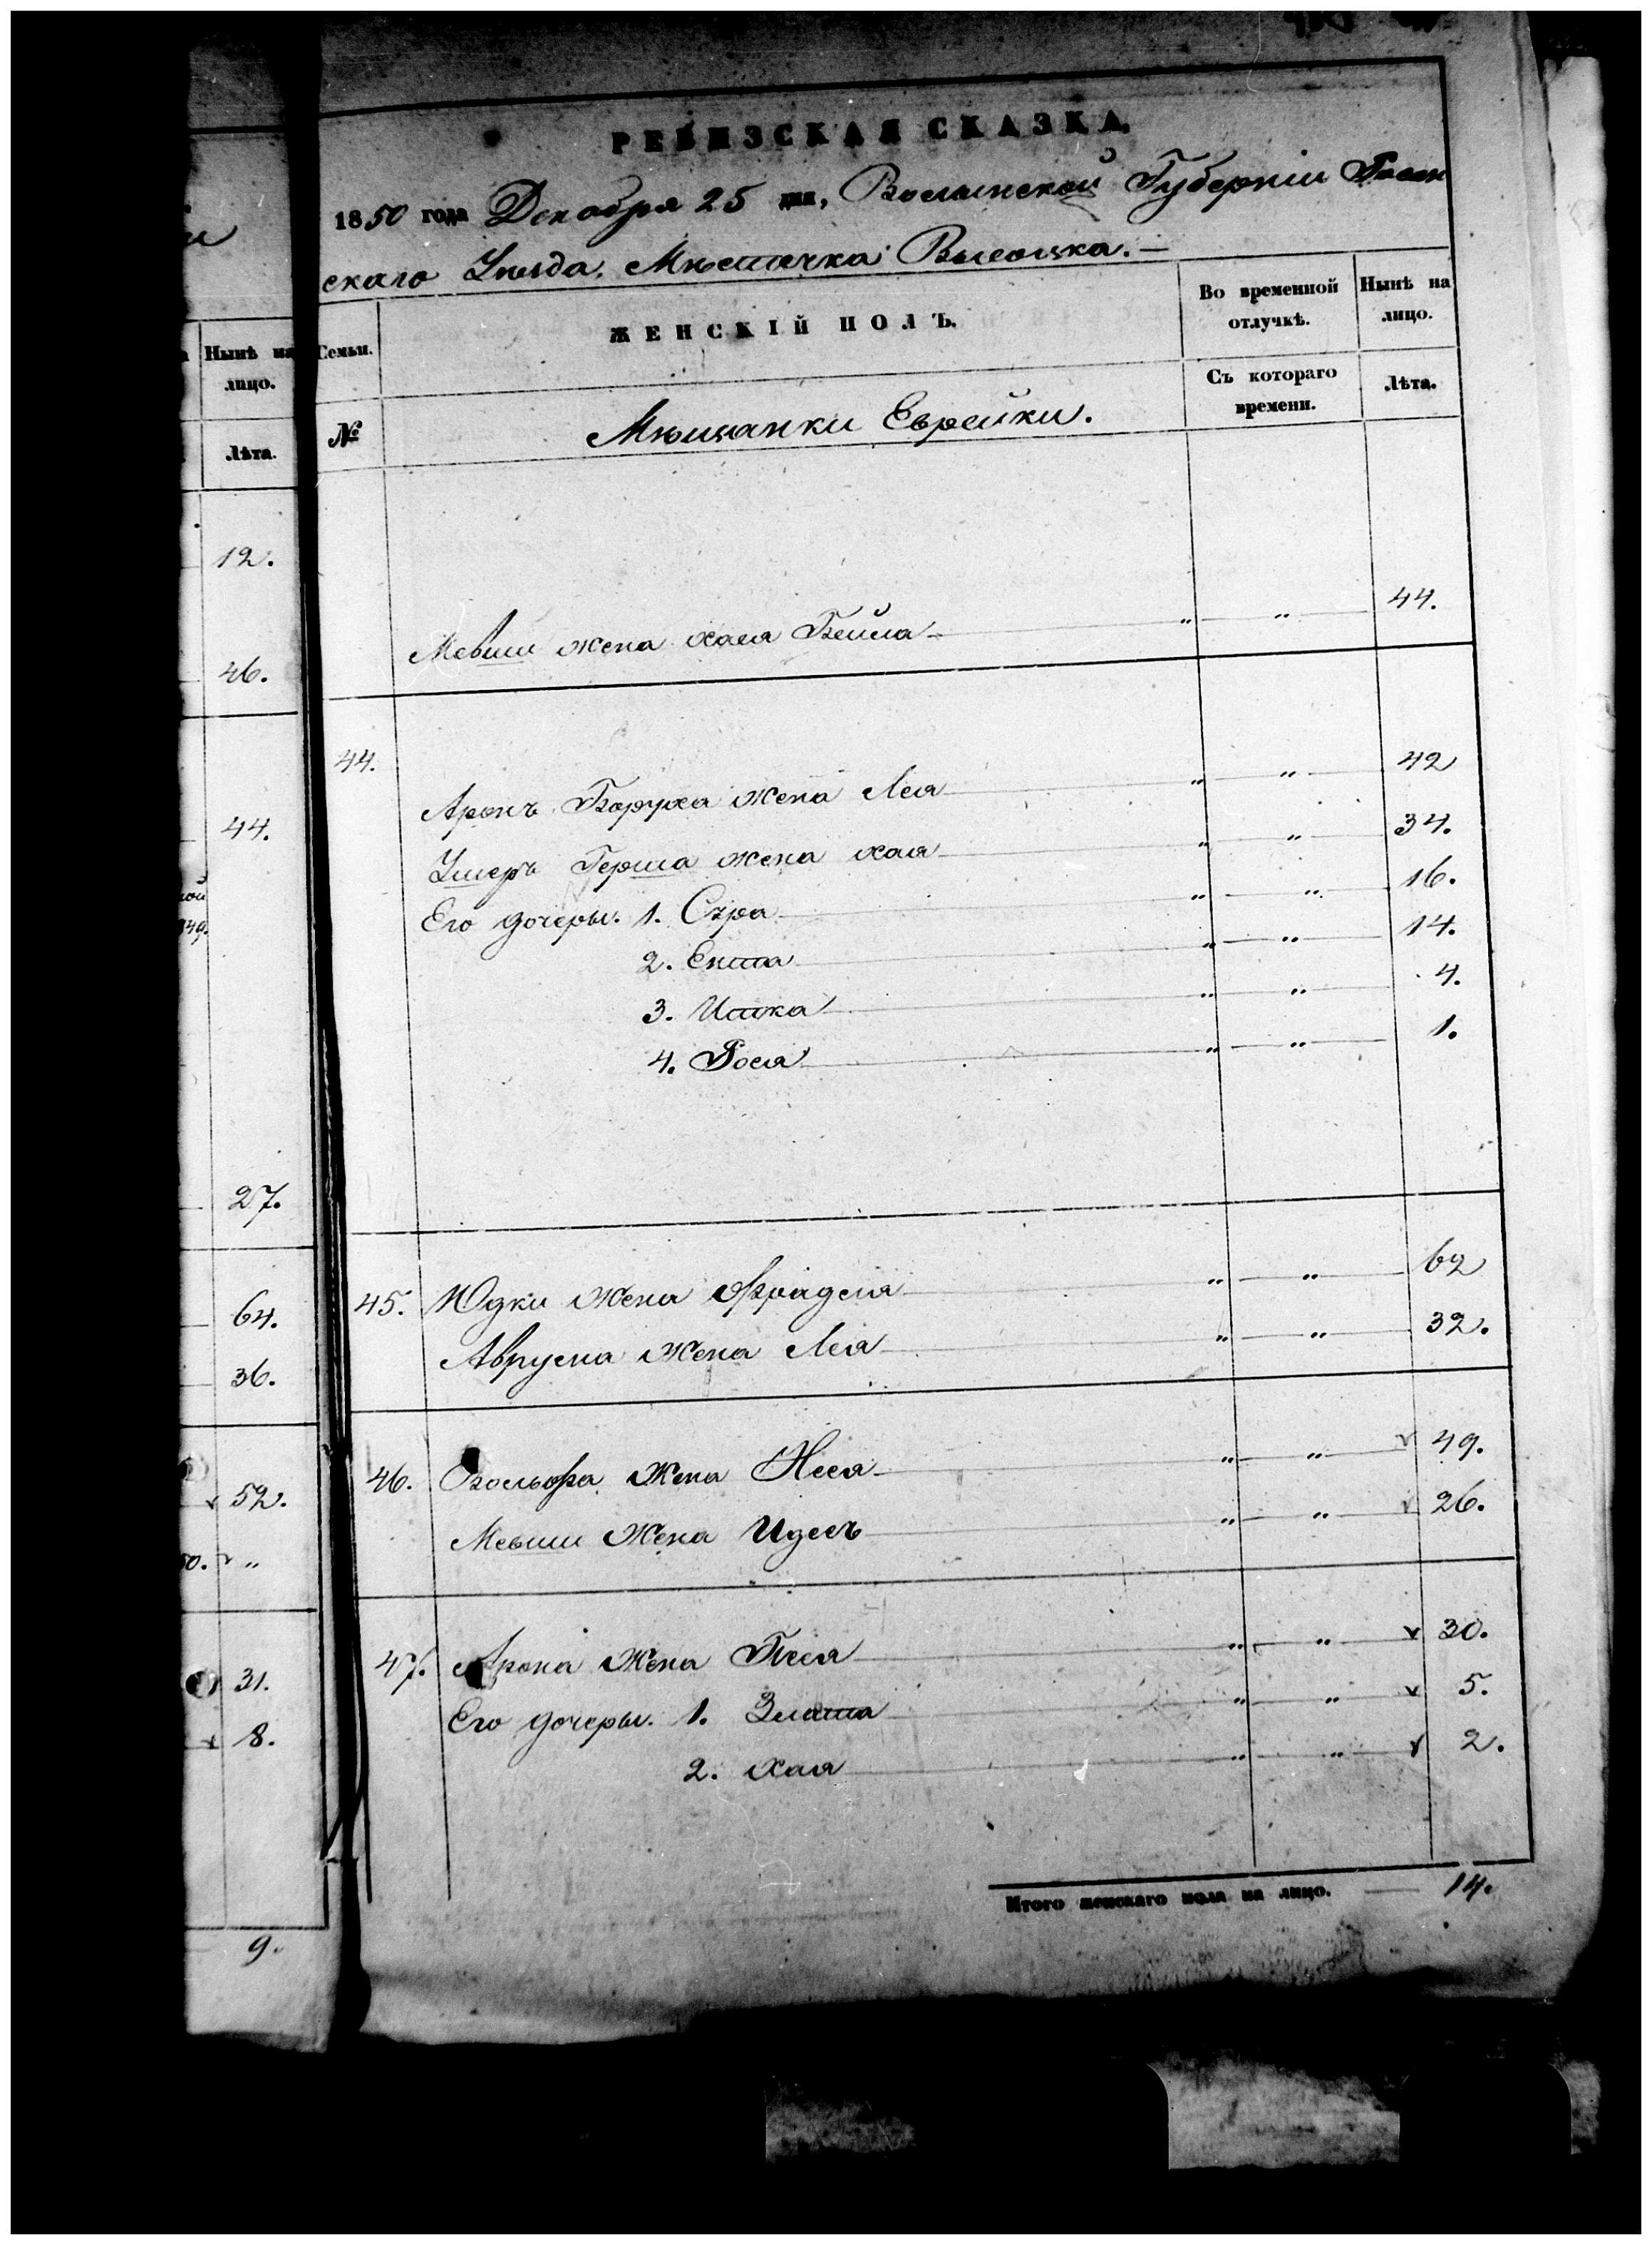 и
Нынѣ на
лицо.
Лѣта.
12.
46.
44.
ной
849.
27.
64.
36.
52.
50. "
31.
8.
9.
РЕВИЗСКАЯ СКАЗКА.
1850 года Декабря 25 дня, Волынской Губерніи Ровен
скаго Уѣзда, Мѣстечка Высоцка. —
Семьи. ЖЕНСКІЙ ПОЛЪ. Во временной отлучкѣ. Нынѣ на лицо.
№ Мѣщанки Еврейки. Съ котораго времени. Лѣта.
Мевши жена Хая Бейла " " 44.
44.
Аронъ Боруха жена Лея " " 42
Умеръ Герша жена Хая " " 34.
Его дочеры. 1. Сура " " 16.
2. Ента " " 14.
3. Итка " " 4.
4. Рося " " 1.
45. Юдки жена Фрадля " " 62
Аврума жена Лея " " 32.
46. Вольфа жена Неся " " 49.
Мевши жена Идесъ " " 26.
47. Арона жена Песя " " 30.
Его дочеры. 1. Злата " " 5.
2. Хая " " 2.
Итого женскаго пола на лицо. — 14.